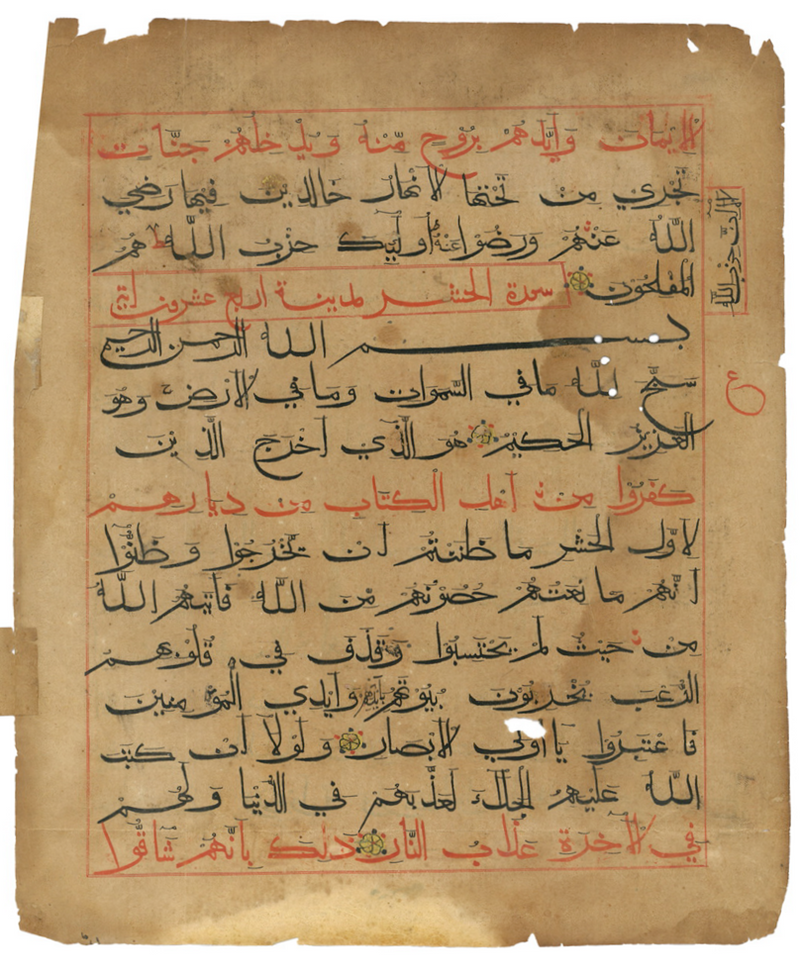 الايمان وَاَيَّدَهُمْ بِرُوْحٍ مِّنْهُ وَيُدْخِلُهُمْ جَنَّات
تَجْرِي مِنْ تَحْتِهَا الانْهَارُ خَالِدِيْنَ فِيْهَا رَضِيَ
اللّٰهُ عَنْهُمْ وَرَضُوْا عَنْهُ اُولٰئِكَ حِزْبُ اللّٰه هُمُ
الا ان حزب الله
المفلحون
سورة الحشر لمدينة اربع عشرون
بسم الله الرحمن الرحيم
سَبَّحَ لِلّٰه مَا فِي السَّمٰوات وَمَا فِي الارْضِ وَهُوَ
ع
العَزِيْزُ الحَكِيْمُ هُوَ الَّذِي اَخْرَجَ الَّذِيْنَ
كَفَرُوْا مِنْ اَهْلِ الْكِتَاب مِنْ دِيَارِهِمْ
لاوَّلِ الحَشْرِ مَا ظَنَنْتُمْ اَنْ يَّخْرُجُوْا وَظَنُّوْا
اَنَّهُمْ مَا نِعَتُهُمْ حُصُوْنُهُمْ مِّنَ اللّٰهِ فَاَتٰهُمُ اللّٰهُ
مِنْ حَيْثُ لَمْ يَحْتَسِبُوْا وَقَذَفَ فِي قُلُوْبِهِمُ
الرُّعْبَ يُخْرِبُوْنَ بُيُوْتَهُمْ بايديهم وَاَيْدِي الْمُؤْمِنِيْنَ
فَا عْتَبِرُوْا يَا اُولِي الابْصَارِ وَلَوْلَا اَنْ كَتَبَ
اللّٰهُ عَلَيْهِمُ الجَلَاءَ لَعَذَّبَهُمْ فِي الدُّنْيَا وَلَهُمْ
فِي الاخِرَةِ عَذَابُ النَّار ذٰلِكَ بِاَنَّهُمْ شَاقُّوْا